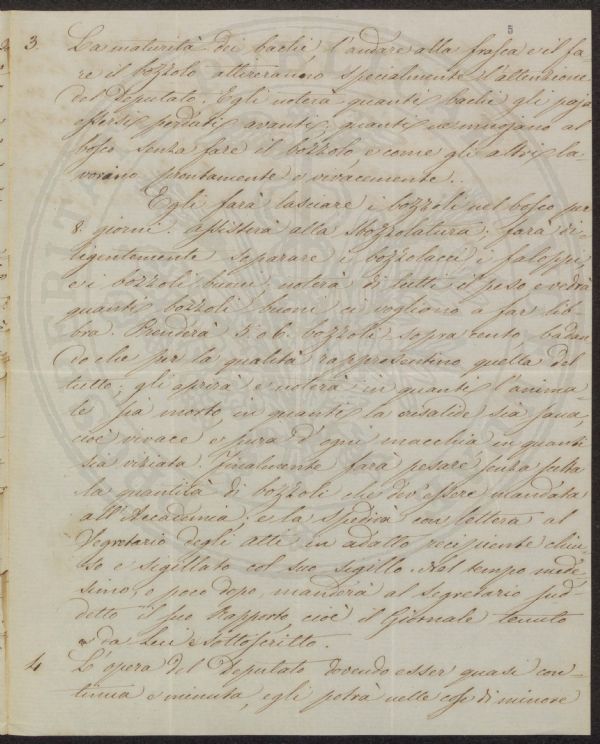 5
3. La maturità dei bachi l'andare alla frasca e il fa-
re il bozzolo attireranno specialmente l'attenzione
del Deputato. Egli noterà quanti bachi gli paja
essersi perduti avanti, quanti ne muojano al
bosco senza fare il bozzolo, e come gli altri la-
vorino prontamente e vivacemente.
Egli farà lasciare i bozzoli nel bosco per
8. giorni: assisterà alla sbozzolatura; farà di-
ligentemente separare i bozzolacci, i faloppi
e i bozzoli buoni, noterà di tutti il peso e vedrà
quanti bozzoli buoni ci vogliono a far lib-
bra. Prenderà 5. o 6. bozzoli sopra cento, badan-
do che per la qualità rappresentino quella del
tutto; gli aprirà e noterà in quanti l'anima-
le sia morto, in quanti la crisalide sia sana,
cioè vivace e pura d'ogni macchia in quanti
sia viziata. Finalmente farà pesare senza scelta
la quantità di bozzoli che dev'essere mandata
all'Accademia, e la spedirà con lettera al
Segretario degli Atti in adatto recipiente chiu-
so e sigillato col suo sigillo. Nel tempo mede-
simo, o poco dopo, manderà al segretario sud-
detto il suo Rapporto, cioè il Giornale tenuto
da Lui e sottoscritto.
4. L'opera del Deputato dovendo esser quasi con-
tinua e minuta, egli potrà nelle cose di minore